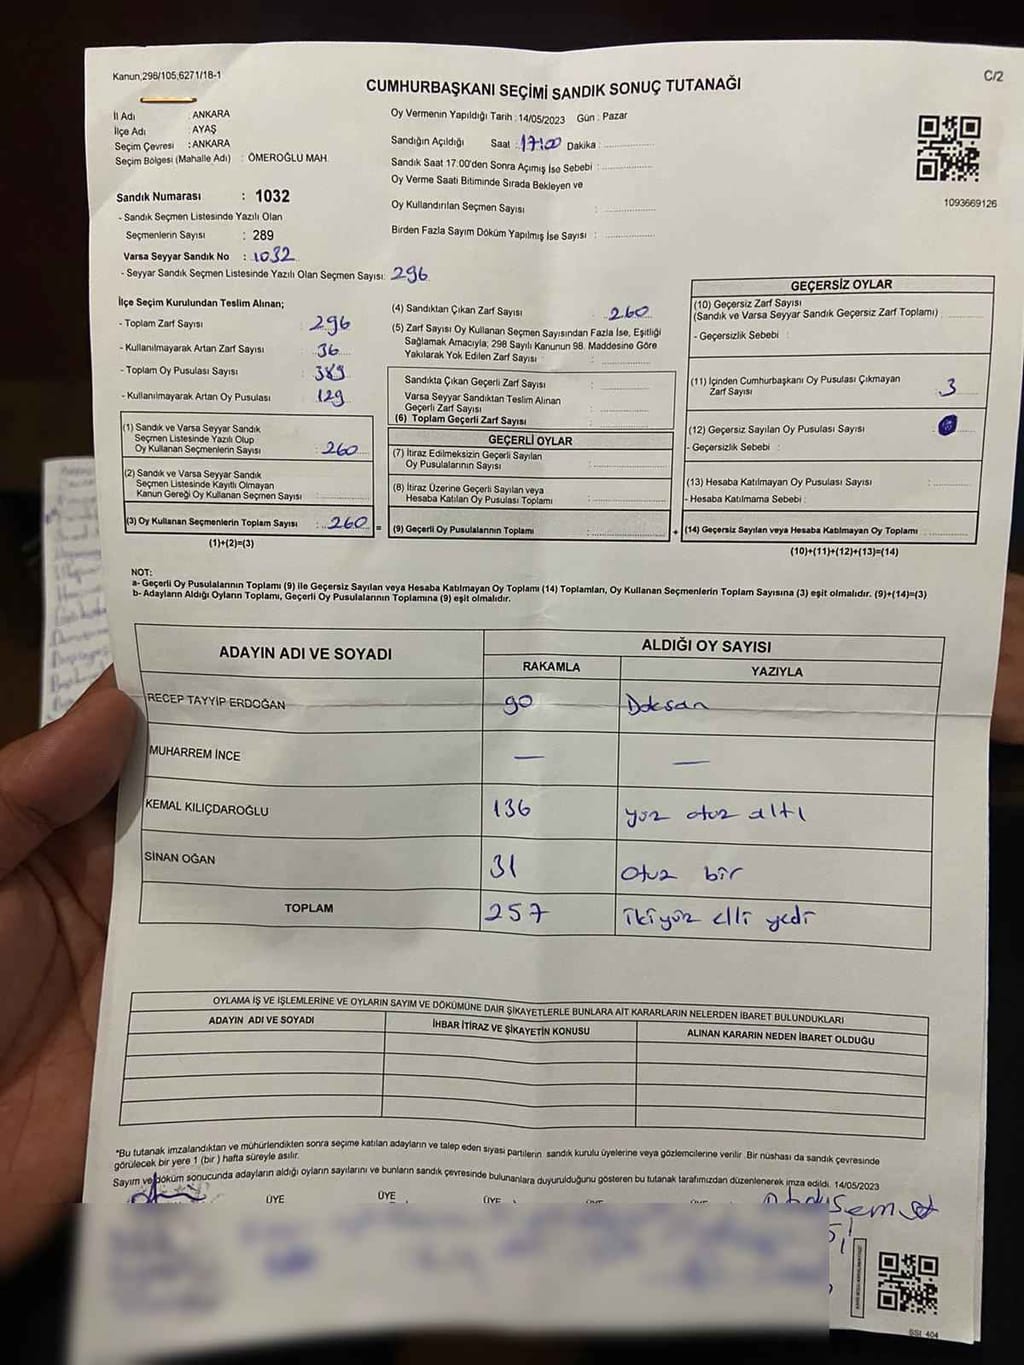 Kanun,298/105,6271/18-1
C/2
CUMHURBAŞKANI SEÇİMİ SANDIK SONUÇ TUTANAĞI
İl Adı : ANKARA
İlçe Adı : AYAŞ
Seçim Çevresi : ANKARA
Seçim Bölgesi (Mahalle Adı) : ÖMEROĞLU MAH.
Sandık Numarası : 1032
- Sandık Seçmen Listesinde Yazılı Olan
Seçmenlerin Sayısı : 289
Varsa Seyyar Sandık No : 1032
- Seyyar Sandık Seçmen Listesinde Yazılı Olan Seçmen Sayısı: 296
Oy Vermenin Yapıldığı Tarih : 14/05/2023 Gün : Pazar
Sandığın Açıldığı Saat : 17:00 Dakika :
Sandık Saat 17:00'den Sonra Açımış İse Sebebi :
Oy Verme Saati Bitiminde Sırada Bekleyen ve
Oy Kullandırılan Seçmen Sayısı :
Birden Fazla Sayım Döküm Yapılmış İse Sayısı :
1093669126
İlçe Seçim Kurulundan Teslim Alınan;
- Toplam Zarf Sayısı : 296
- Kullanılmayarak Artan Zarf Sayısı : 36
- Toplam Oy Pusulası Sayısı : 389
- Kullanılmayarak Artan Oy Pusulası : 129
(1) Sandık ve Varsa Seyyar Sandık
Seçmen Listesinde Yazılı Olup
Oy Kullanan Seçmenlerin Sayısı : 260
(2) Sandık ve Varsa Seyyar Sandık
Seçmen Listesinde Kayıtlı Olmayan
Kanun Gereği Oy Kullanan Seçmen Sayısı :
(3) Oy Kullanan Seçmenlerin Toplam Sayısı : 260 =
(1)+(2)=(3)
(4) Sandıktan Çıkan Zarf Sayısı : 260
(5) Zarf Sayısı Oy Kullanan Seçmen Sayısından Fazla İse, Eşitliği
Sağlamak Amacıyla; 298 Sayılı Kanunun 98. Maddesine Göre
Yakılarak Yok Edilen Zarf Sayısı :
Sandıkta Çıkan Geçerli Zarf Sayısı :
Varsa Seyyar Sandıktan Teslim Alınan
Geçerli Zarf Sayısı :
(6) Toplam Geçerli Zarf Sayısı :
GEÇERLİ OYLAR
(7) İtiraz Edilmeksizin Geçerli Sayılan
Oy Pusulalarının Sayısı :
(8) İtiraz Üzerine Geçerli Sayılan veya
Hesaba Katılan Oy Pusulası Toplamı :
(9) Geçerli Oy Pusulalarının Toplamı : +
GEÇERSİZ OYLAR
(10) Geçersiz Zarf Sayısı
(Sandık ve Varsa Seyyar Sandık Geçersiz Zarf Toplamı) :
- Geçersizlik Sebebi :
(11) İçinden Cumhurbaşkanı Oy Pusulası Çıkmayan
Zarf Sayısı : 3
(12) Geçersiz Sayılan Oy Pusulası Sayısı :
- Geçersizlik Sebebi :
(13) Hesaba Katılmayan Oy Pusulası Sayısı :
- Hesaba Katılmama Sebebi :
(14) Geçersiz Sayılan veya Hesaba Katılmayan Oy Toplamı :
(10)+(11)+(12)+(13)=(14)
NOT:
a- Geçerli Oy Pusulalarının Toplamı (9) ile Geçersiz Sayılan veya Hesaba Katılmayan Oy Toplamı (14) Toplamları, Oy Kullanan Seçmenlerin Toplam Sayısına (3) eşit olmalıdır. (9)+(14)=(3)
b- Adayların Aldığı Oyların Toplamı, Geçerli Oy Pusulalarının Toplamına (9) eşit olmalıdır.
ADAYIN ADI VE SOYADI ALDIĞI OY SAYISI
RAKAMLA YAZIYLA
RECEP TAYYİP ERDOĞAN 90 Doksan
MUHARREM İNCE — —
KEMAL KILIÇDAROĞLU 136 yüz otuz altı
SİNAN OĞAN 31 otuz bir
TOPLAM 257 ikiyüz elli yedi
OYLAMA İŞ VE İŞLEMLERİNE VE OYLARIN SAYIM VE DÖKÜMÜNE DAİR ŞİKAYETLERLE BUNLARA AİT KARARLARIN NELERDEN İBARET BULUNDUKLARI
ADAYIN ADI VE SOYADI İHBAR İTİRAZ VE ŞİKAYETİN KONUSU ALINAN KARARIN NEDEN İBARET OLDUĞU
*Bu tutanak imzalandıktan ve mühürlendikten sonra seçime katılan adayların ve talep eden siyasi partilerin sandık kurulu üyelerine veya gözlemcilerine verilir. Bir nüshası da sandık çevresinde
görülecek bir yere 1 (bir) hafta süreyle asılır.
Sayım ve döküm sonucunda adayların aldığı oyların sayılarını ve bunların sandık çevresinde bulunanlara duyurulduğunu gösteren bu tutanak tarafımızdan düzenlenerek imza edildi. 14/05/2023
ÜYE ÜYE ÜYE
SSI 404